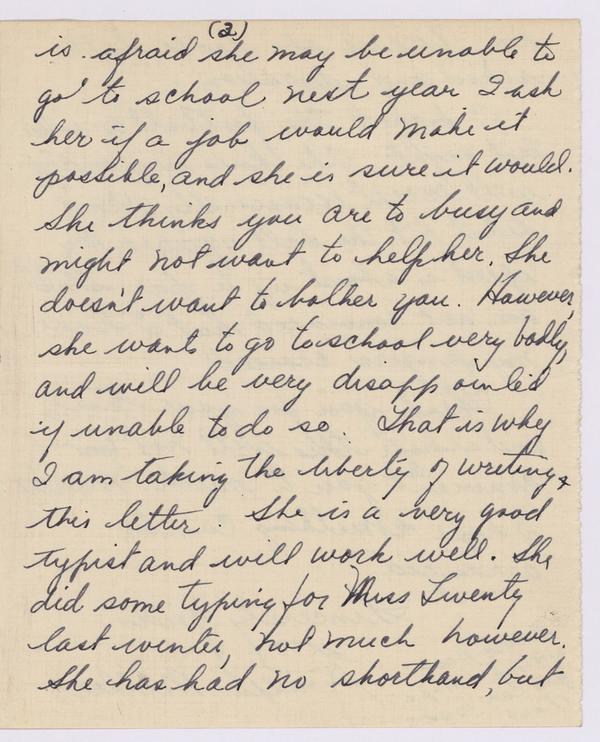 (2)
is afraid she may be unable to
go to school next year I ask
her if a job would make it
possible, and she is sure it would.
She thinks you are to busy and
might not want to help her. She
doesn't want to bother you. However,
she wants to go to school very badly,
and will be very disappointed
if unable to do so. That is why
I am taking the liberty of writing
this letter. She is a very good
typist and will work well. She
did some typing for Miss Twenty
last winter, not much however.
She has had no shorthand, but